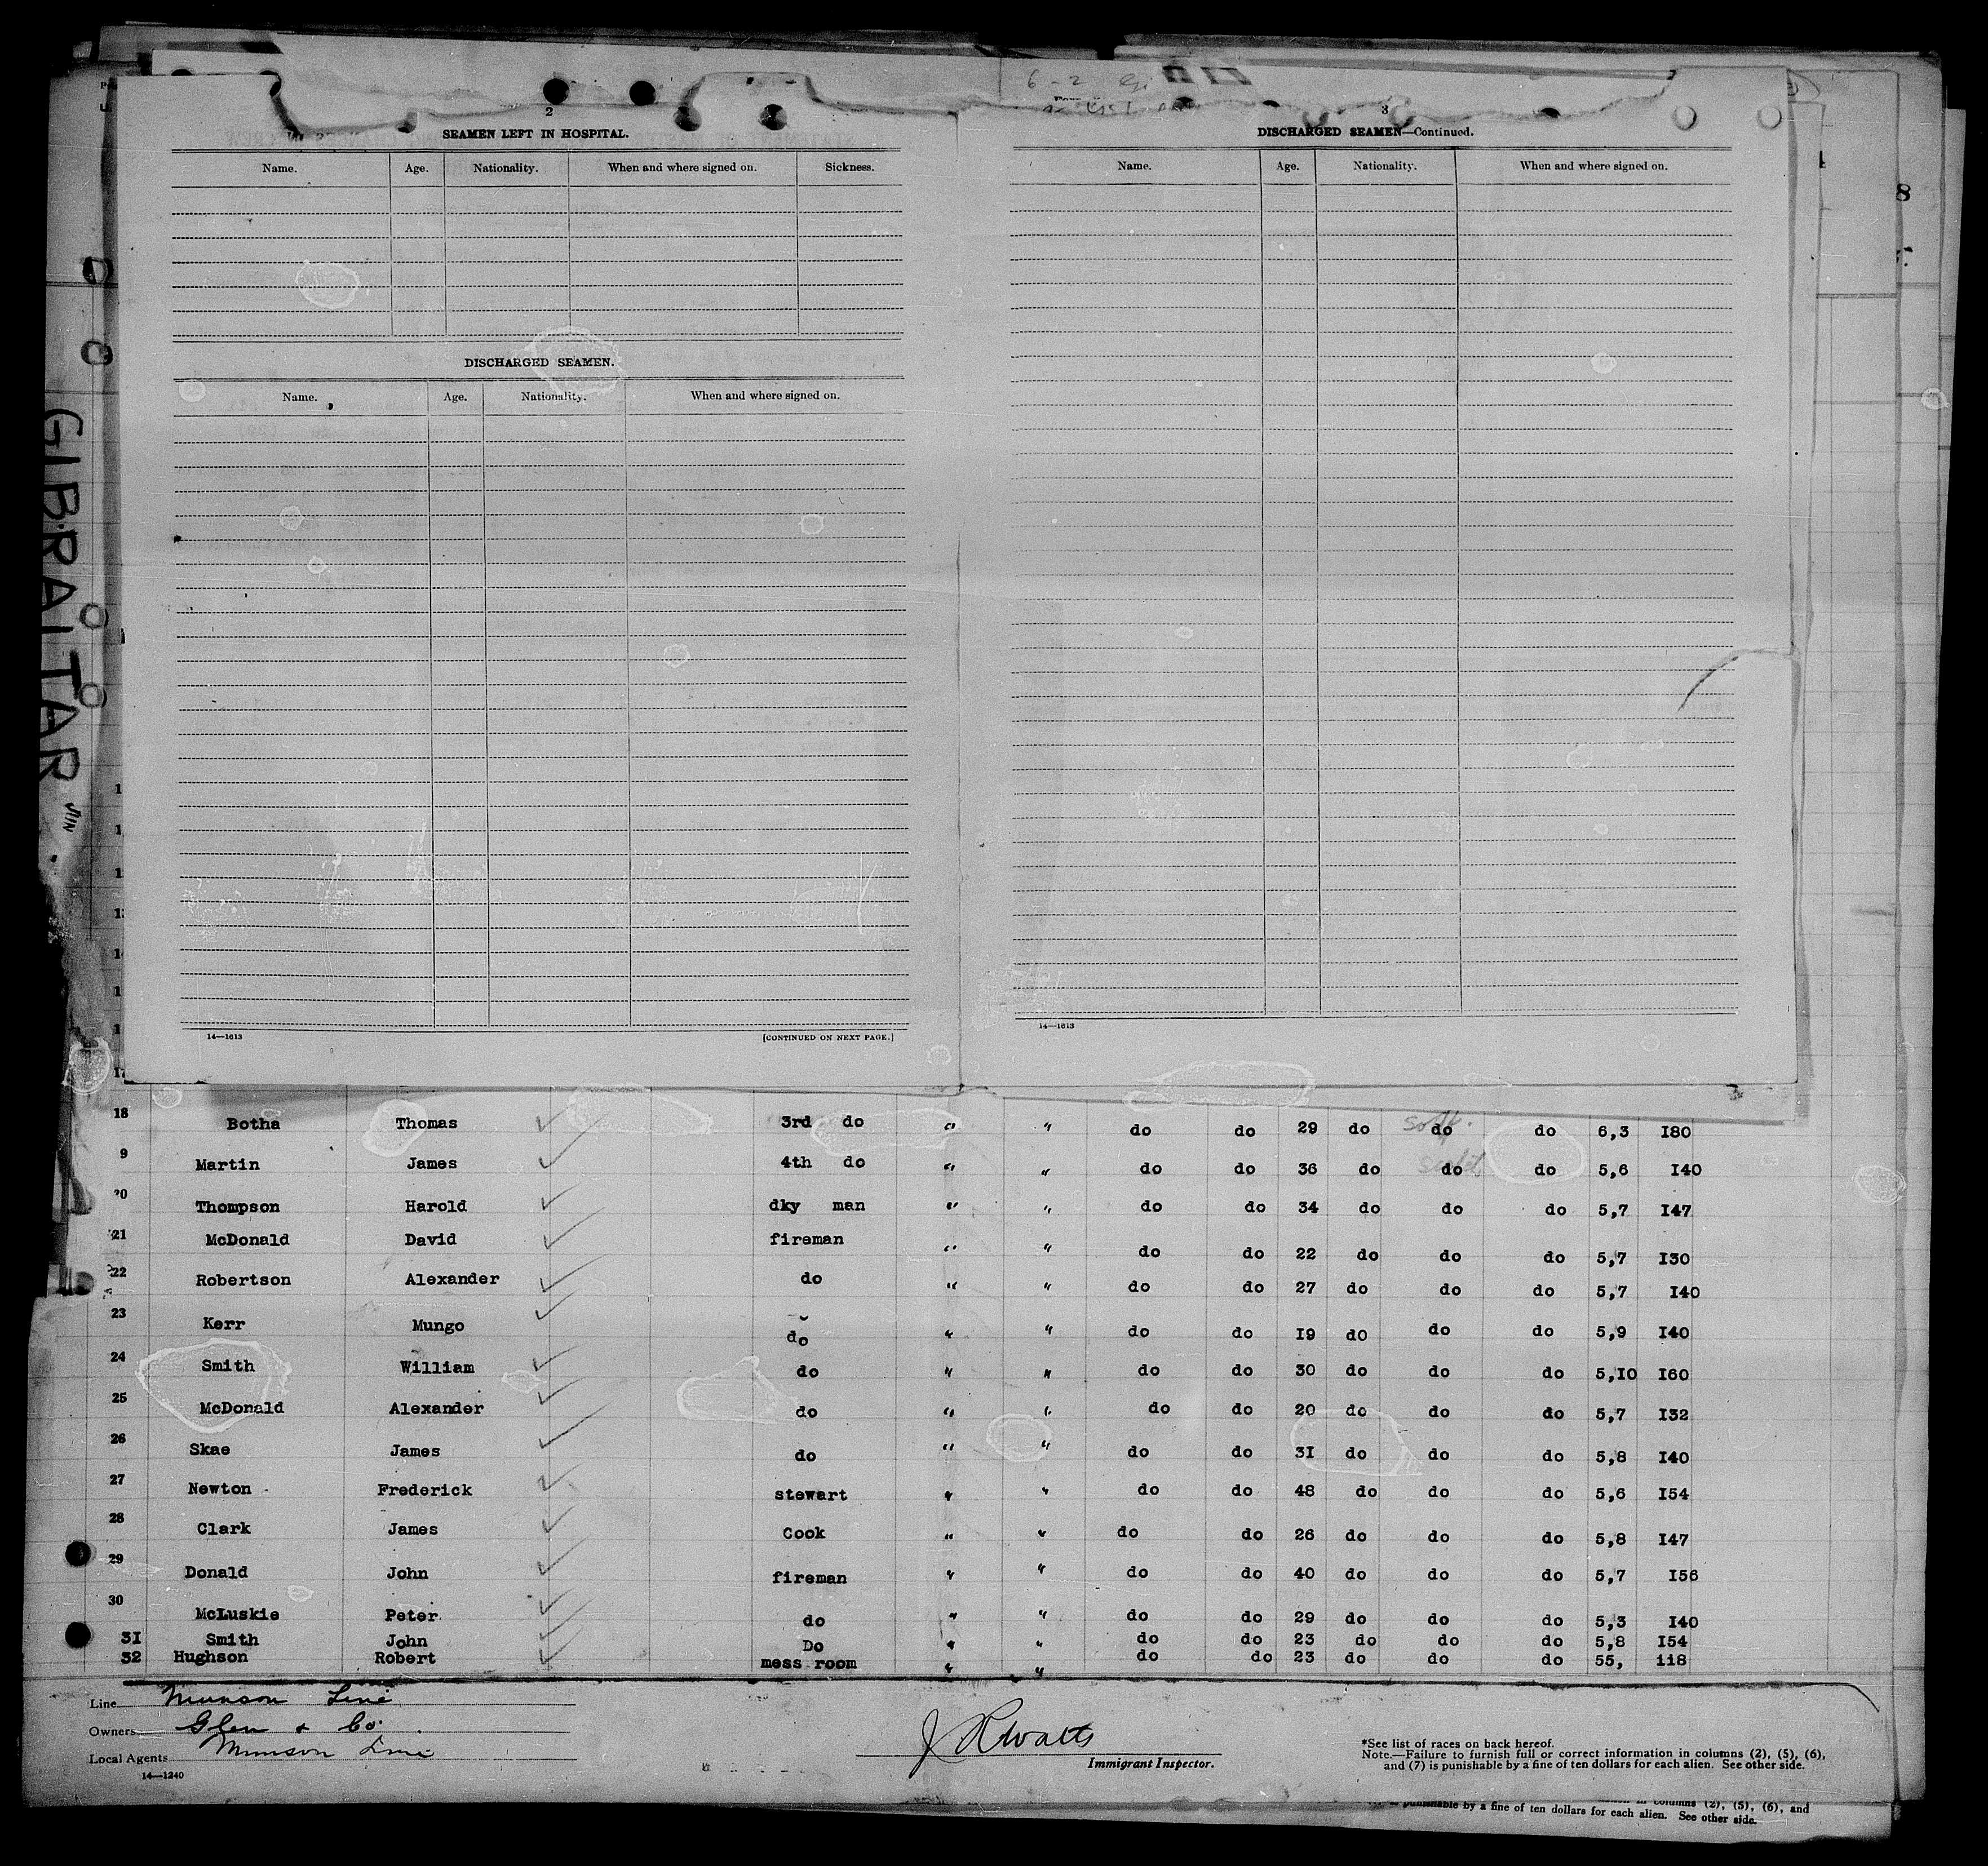 GIBRALTAR
2
SEAMEN LEFT IN HOSPITAL.
Name. Age. Nationality. When and where signed on. Sickness.
DISCHARGED SEAMEN.
Name. Age. Nationality. When and where signed on.
14—1613 [CONTINUED ON NEXT PAGE.]
6 - 2
3
DISCHARGED SEAMEN—Continued.
Name. Age. Nationality. When and where signed on.
14—1613
3
18 Botha Thomas ✓ 3rd do " " do do 29 do do do 6,3 I80
9 Martin James ✓ 4th do " " do do 36 do do do 5,6 I40
20 Thompson Harold ✓ dky man " " do do 34 do do do 5,7 I47
21 McDonald David ✓ fireman " " do do 22 do do do 5,7 I30
22 Robertson Alexander ✓ do " " do do 27 do do do 5,7 I40
23 Kerr Mungo ✓ do " " do do I9 do do do 5,9 I40
24 Smith William ✓ do " " do do 30 do do do 5,I0 I60
25 McDonald Alexander ✓ do " " do do 20 do do do 5,7 I32
26 Skae James ✓ do " " do do 3I do do do 5,8 I40
27 Newton Frederick ✓ stewart " " do do 48 do do do 5,6 I54
28 Clark James ✓ Cook " " do do 26 do do do 5,8 I47
29 Donald John ✓ fireman " " do do 40 do do do 5,7 I56
30 McLuskie Peter ✓ do " " do do 29 do do do 5,3 I40
3I Smith John ✓ Do " " do do 23 do do do 5,8 I54
32 Hughson Robert ✓ mess room " " do do 23 do do do 55, 118
Line Munson Line
Owners Glen & Co.
Local Agents Munson Line
14—1240
J R Watts
Immigrant Inspector.
*See list of races on back hereof.
Note.—Failure to furnish full or correct information in columns (2), (5), (6),
and (7) is punishable by a fine of ten dollars for each alien. See other side.
in columns (2), (5), (6), and
punishable by a fine of ten dollars for each alien. See other side.